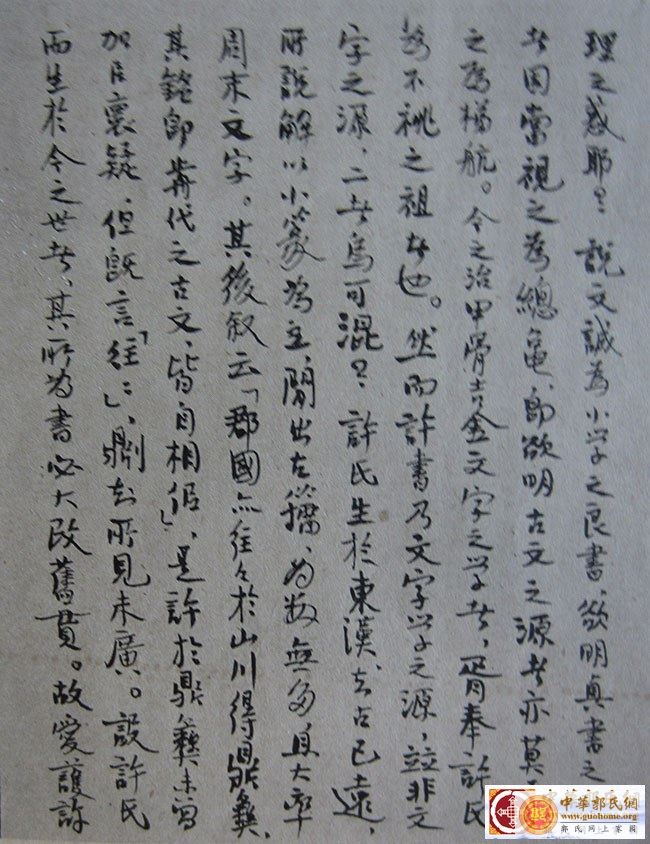 理之惑耶?說文誠為小学之良書,欲明真書之
者固當視之為總龜,即欲明古文之源者亦莫
之為梯航。今之治甲骨吉金文字之学者,胥奉許氏
為不祧之祖者也。然而許書乃文字学之源,並非文
字之源,二者烏可混?許氏生於東漢,去古已遠,
所說解以小篆為主,間出古籀,為数無多,且大率
周末文字。其後叙云「郡國亦往々於山川得鼎彝,
其銘即前代之古文,皆自相似」,是許於鼎彝未曾
加以懷疑,但旣言「往々」,則知所見未廣。設許氏
而生於今之世者,其所為書必大改舊貫。故愛護許
中華郭氏網
www.guohome.org
郭氏網上家園